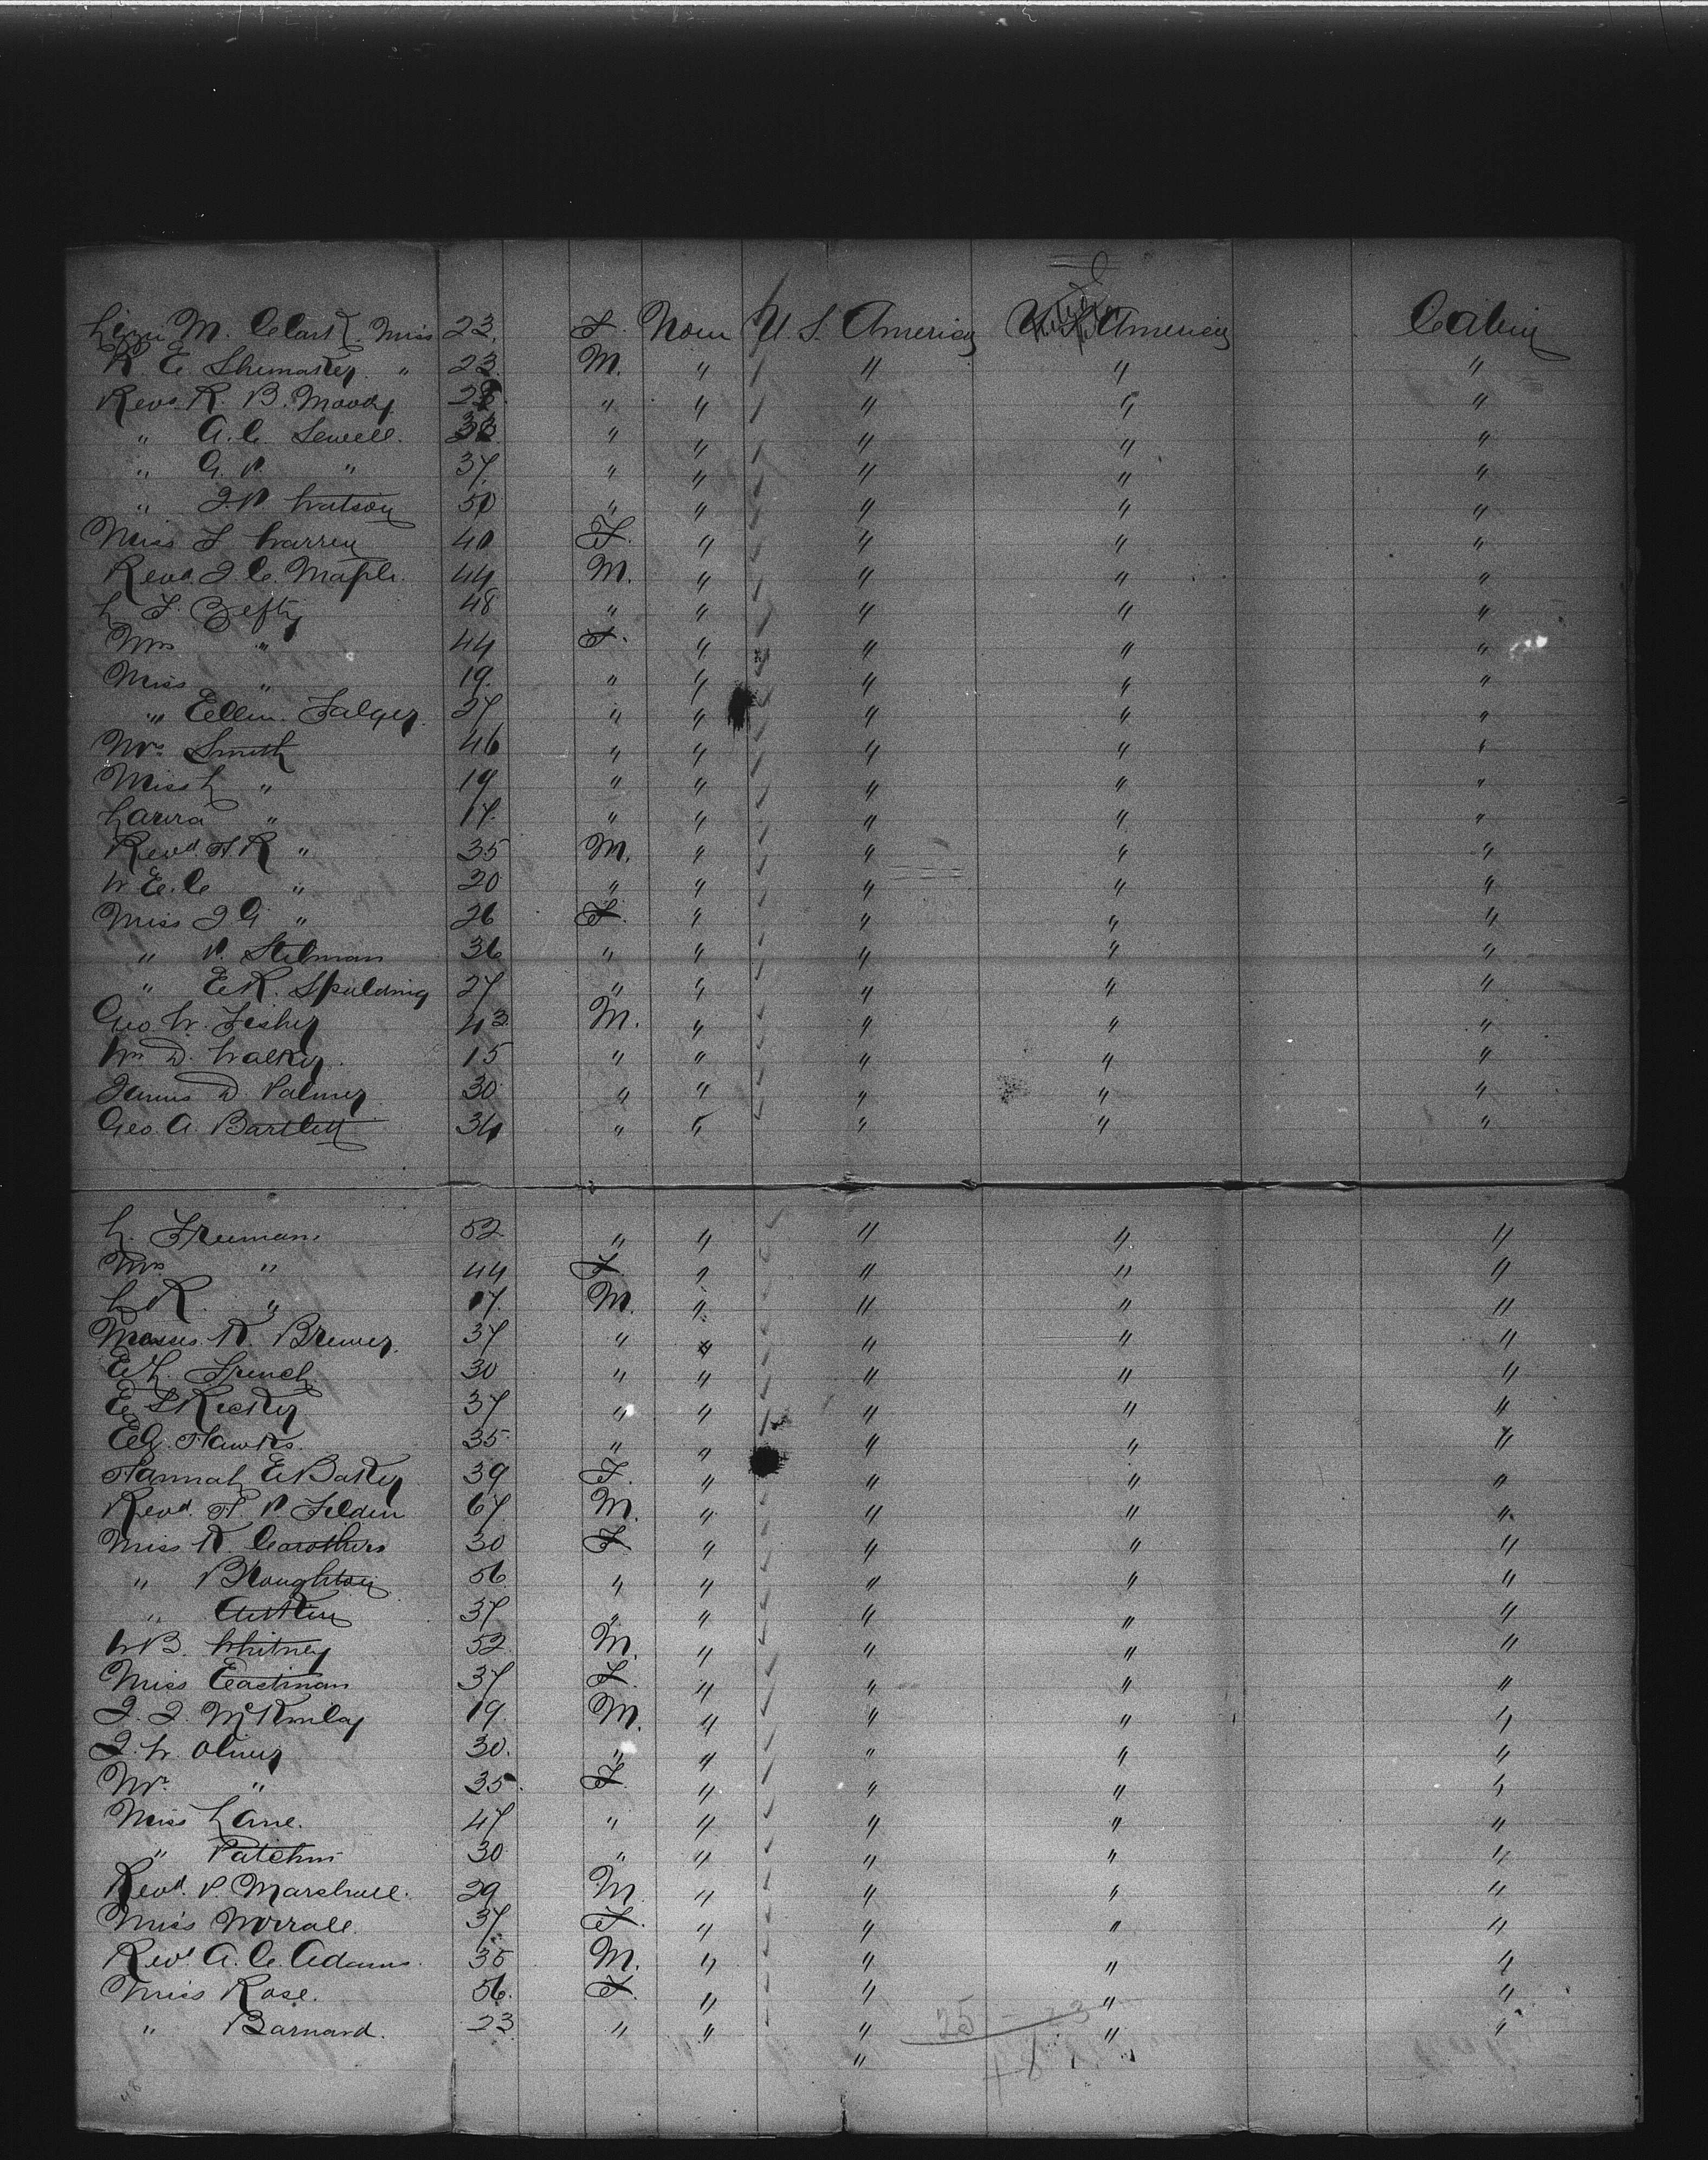 Lizzie M. Clark. Miss 23. F. None U. S. America America Cabin
R. E. Shumaker. " 23. M. " " " "
Revd. R. B. Moody. 28. " " " " "
" A. C. Sewell. " " " " "
" G. P. " 37. " " " " "
" J. P. Watson 50 " " " " "
Miss F Warren 40 F. " " " "
Revd. J. C. Maple. 44 M. " " " "
L F. Zefty 48 " " " " "
Mrs " 44 F. " " " "
Miss " 19. " " " " "
" Ellen. Folger. 37 " " " " "
Mrs Smith 46 " " " " "
Miss L " 19 " " " " "
Laura " 17. " " " " "
Revd. H R " 35 M. " " " "
W E. C " 20 " " " " "
Miss J G " 26 F. " " " "
" P. Stilman 36 " " " " "
" E R. Spulding 27 " " " " "
Geo W. Fisher 43 M. " " " "
Wm D. Walker. 15 " " " " "
James D Palmer 30 " " " " "
Geo. A. Bartlett 34 " " " " "
L. Freeman. 52 " " " " "
Mrs " 44 F. " " " "
L R. " 17. M. " " " "
R. Brewer. 37 " " " " "
E L. French 30 " " " " "
E. S Recker 37 " " " " "
E G. Hawks. 35 " " " " "
Hannah E Baker 39 F. " " " "
Revd. H. P Felden 67 M. " " " "
Miss R. Carothers 30 F. " " " "
" Broughton 56 " " " " "
" Aitken 37 " " " " "
W B. Whitney 52 M. " " " "
Miss Eastman 37 F. " " " "
J. J. McKinlay 19. M. " " " "
J. W. Oliver 30. " " " " "
Mrs " 35. F. " " " "
Miss Lane. 47 " " " " "
" Patchin 30 " " " " "
Revd. P. Marshall. 29 M. " " " "
Miss Worrall. 37 F. " " " "
Revd A. C. Adams. 35 M. " " " "
Miss Rose. 56. F. " " " "
" Barnard. 23. " " " " "
25 - 23
"
48